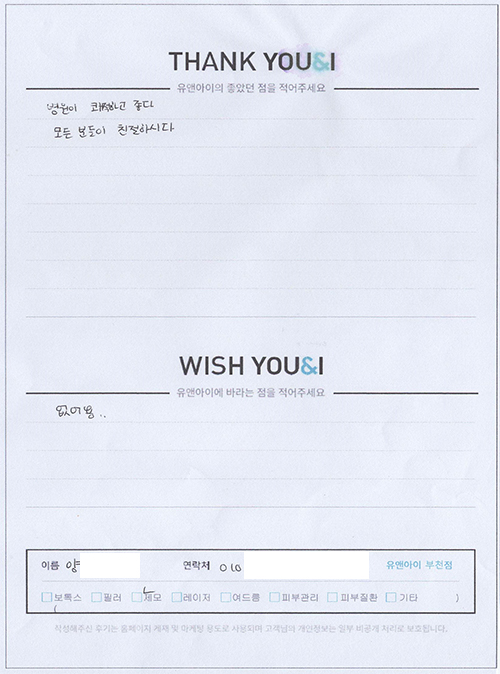 THANK YOU&I
유앤아이의 좋았던 점을 적어주세요
병원이 쾌적하고 좋다
모든 분들이 친절하시다
WISH YOU&I
유앤아이에 바라는 점을 적어주세요
없어용..
이름 양 연락처 010 유앤아이 부천점
보톡스 필러 제모 레이저 여드름 피부관리 피부질환 기타 )
(
작성해주신 후기는 홈페이지 게재 및 마케팅 용도로 사용되며 고객님의 개인정보는 일부 비공개 처리로 보호됩니다.